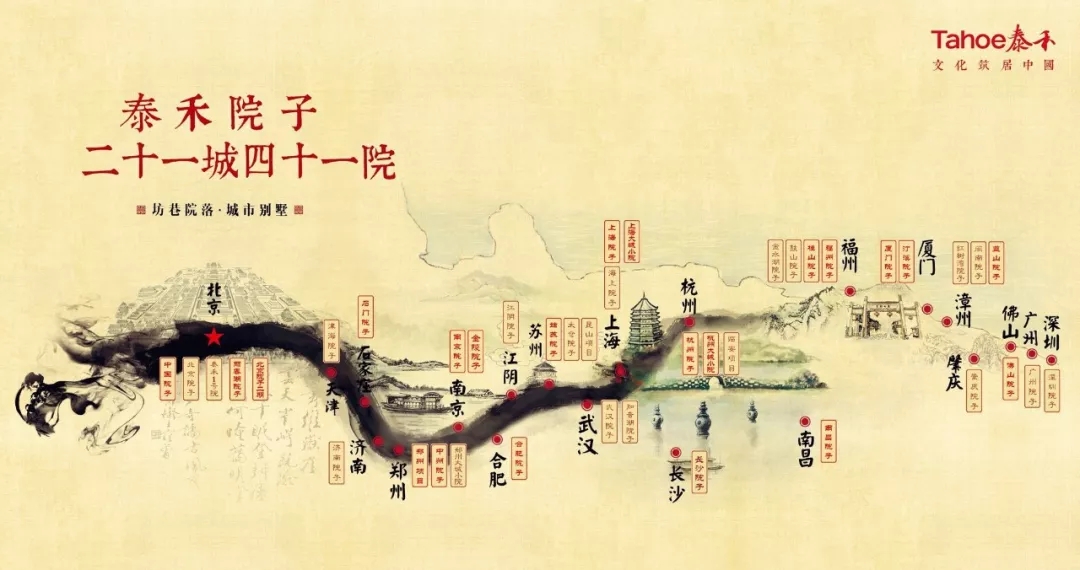 Tahoe泰禾
文化筑居中國
泰禾院子
二十一城四十一院
坊巷院落·城市别墅
北京
中国院子
北京院子
泰禾1号院
西府院子
北京院子二期
天津
津海院子
石家庄
石门院子
济南
济南院子
郑州
郑州项目
中州院子
郑州大城小院
南京
南京院子
金陵院子
合肥
合肥院子
江阴
江阴院子
苏州
姑苏院子
太仓院子
昆山项目
上海
上海院子
上海大城小院
海上院子
武汉
武汉院子
知音湖院子
杭州
杭州院子
杭州大城小院
临安项目
长沙
长沙院子
南昌
南昌院子
福州
鼓山院子
福州院子
厦门
厦门院子
汀溪院子
漳州
红树湾院子
蓝山院子
肇庆
肇庆院子
佛山
佛山院子
广州
广州院子
深圳
深圳院子